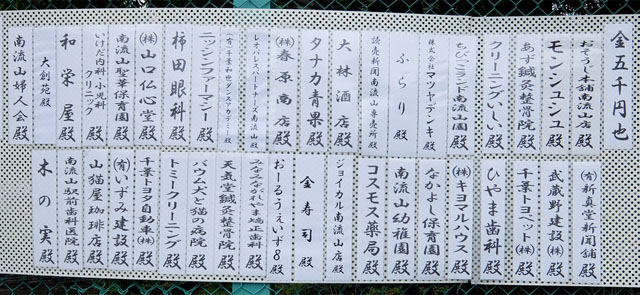 金五千円也
おそうじ本舗南流山店殿
モンシュシュ殿
あす鍼灸整骨院殿
クリーニングいしい殿
ちびっこランド南流山園殿
株式会社マツヤデンキ殿
ふらり殿
読売新聞南流山専売所殿
大林酒店殿
タナカ青果殿
(株)春原商店殿
レオパレスパートナーズ南流山殿
ニッシンファーマシー殿
柿田眼科殿
(株)山口仏心堂殿
南流山聖華保育園殿
いけだ内科・小児科クリニック殿
和栄屋殿
大創苑殿
南流山婦人会殿
(有)新真堂新聞舗殿
武蔵野建設(株)殿
千葉トヨペット(株)殿
ひやま歯科殿
(株)キヨマルハウス殿
なかよし保育園殿
南流山幼稚園殿
コスモス薬局殿
ジョイカル南流山店殿
金寿司殿
おーるうぇいず8殿
みなみながれやま矯正歯科殿
天気堂鍼灸整骨院殿
バウム犬と猫の病院殿
トミークリーニング殿
千葉トヨタ自動車(株)殿
(有)いずみ建設殿
山猫屋珈琲店殿
南流山駅前歯科医院殿
木の実殿